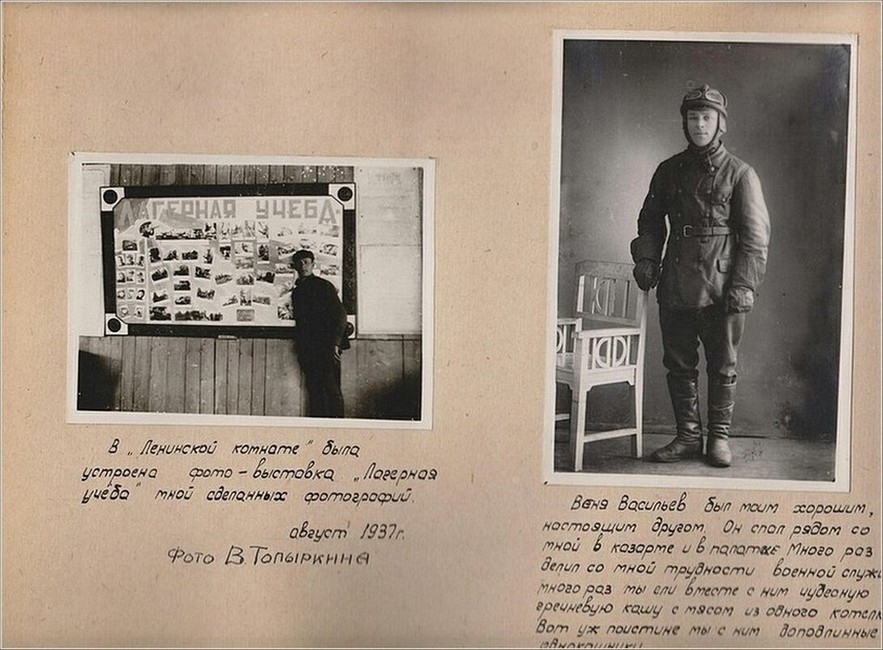 ЛАГЕРНАЯ УЧЕБА
В „Ленинской комнате" была
устроена фото-выставка „Лагерная
учёба" мной сделанных фотографий.
август 1937г.
Фото В. Топыркина
Ваня Васильев был моим хорошим,
настоящим другом. Он спал рядом со
мной в казарме и в палатке. Много раз
делил со мной трудности военной служ
много раз мы ели вместе с ним чудесную
гречневую кашу с мясом из одного котел
Вот уж поистине мы с ним доподлинные
однокашники